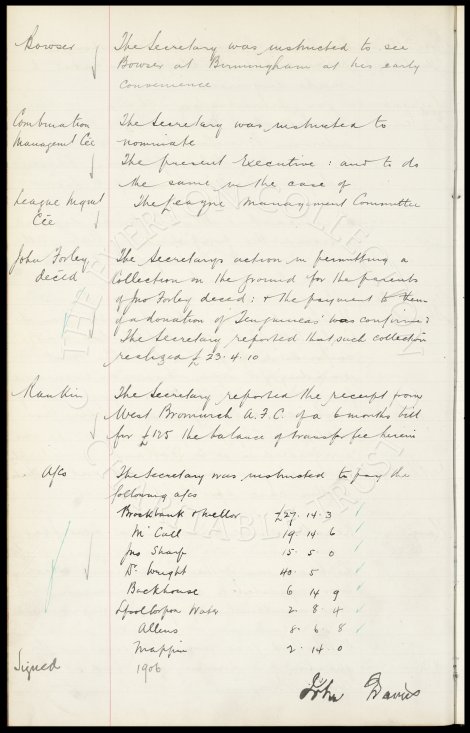 Bowser The Secretary was instructed to see
Bowser at Birmingham at his early
convenience
Combination The Secretary was instructed to
Managemt Cee nominate
The present Executive: and to do
the same in the case of
League Mgmt The League Management Committee
Cee
John Forley The Secretary's action in permitting a
decēd collection on the ground for the parents
of Jno Forley decēd: & the payment to them
of a donation of Ten guineas was confirmed
The Secretary reported that such collection
realized £23.4.10
Rankin The Secretary reported the receipt from
West Bromwich A.F.C. of a 6 months bill
for £125 the balance of transfer fee herein
A/cs The Secretary was instructed to pay the
following a/cs
Brockbank & Mellor £27.14.3
McCall 19.14.6
Jno Sharp 15.5.0
Dr. Wright 40.5
Backhouse 6.14.9
Lpool Corpon Water 2.8.4
Allens 8.6.8
Mappin 2.14.0
Signed 1906
John Davies
THE EVERTON COLLECTION
CHARITABLE TRUST